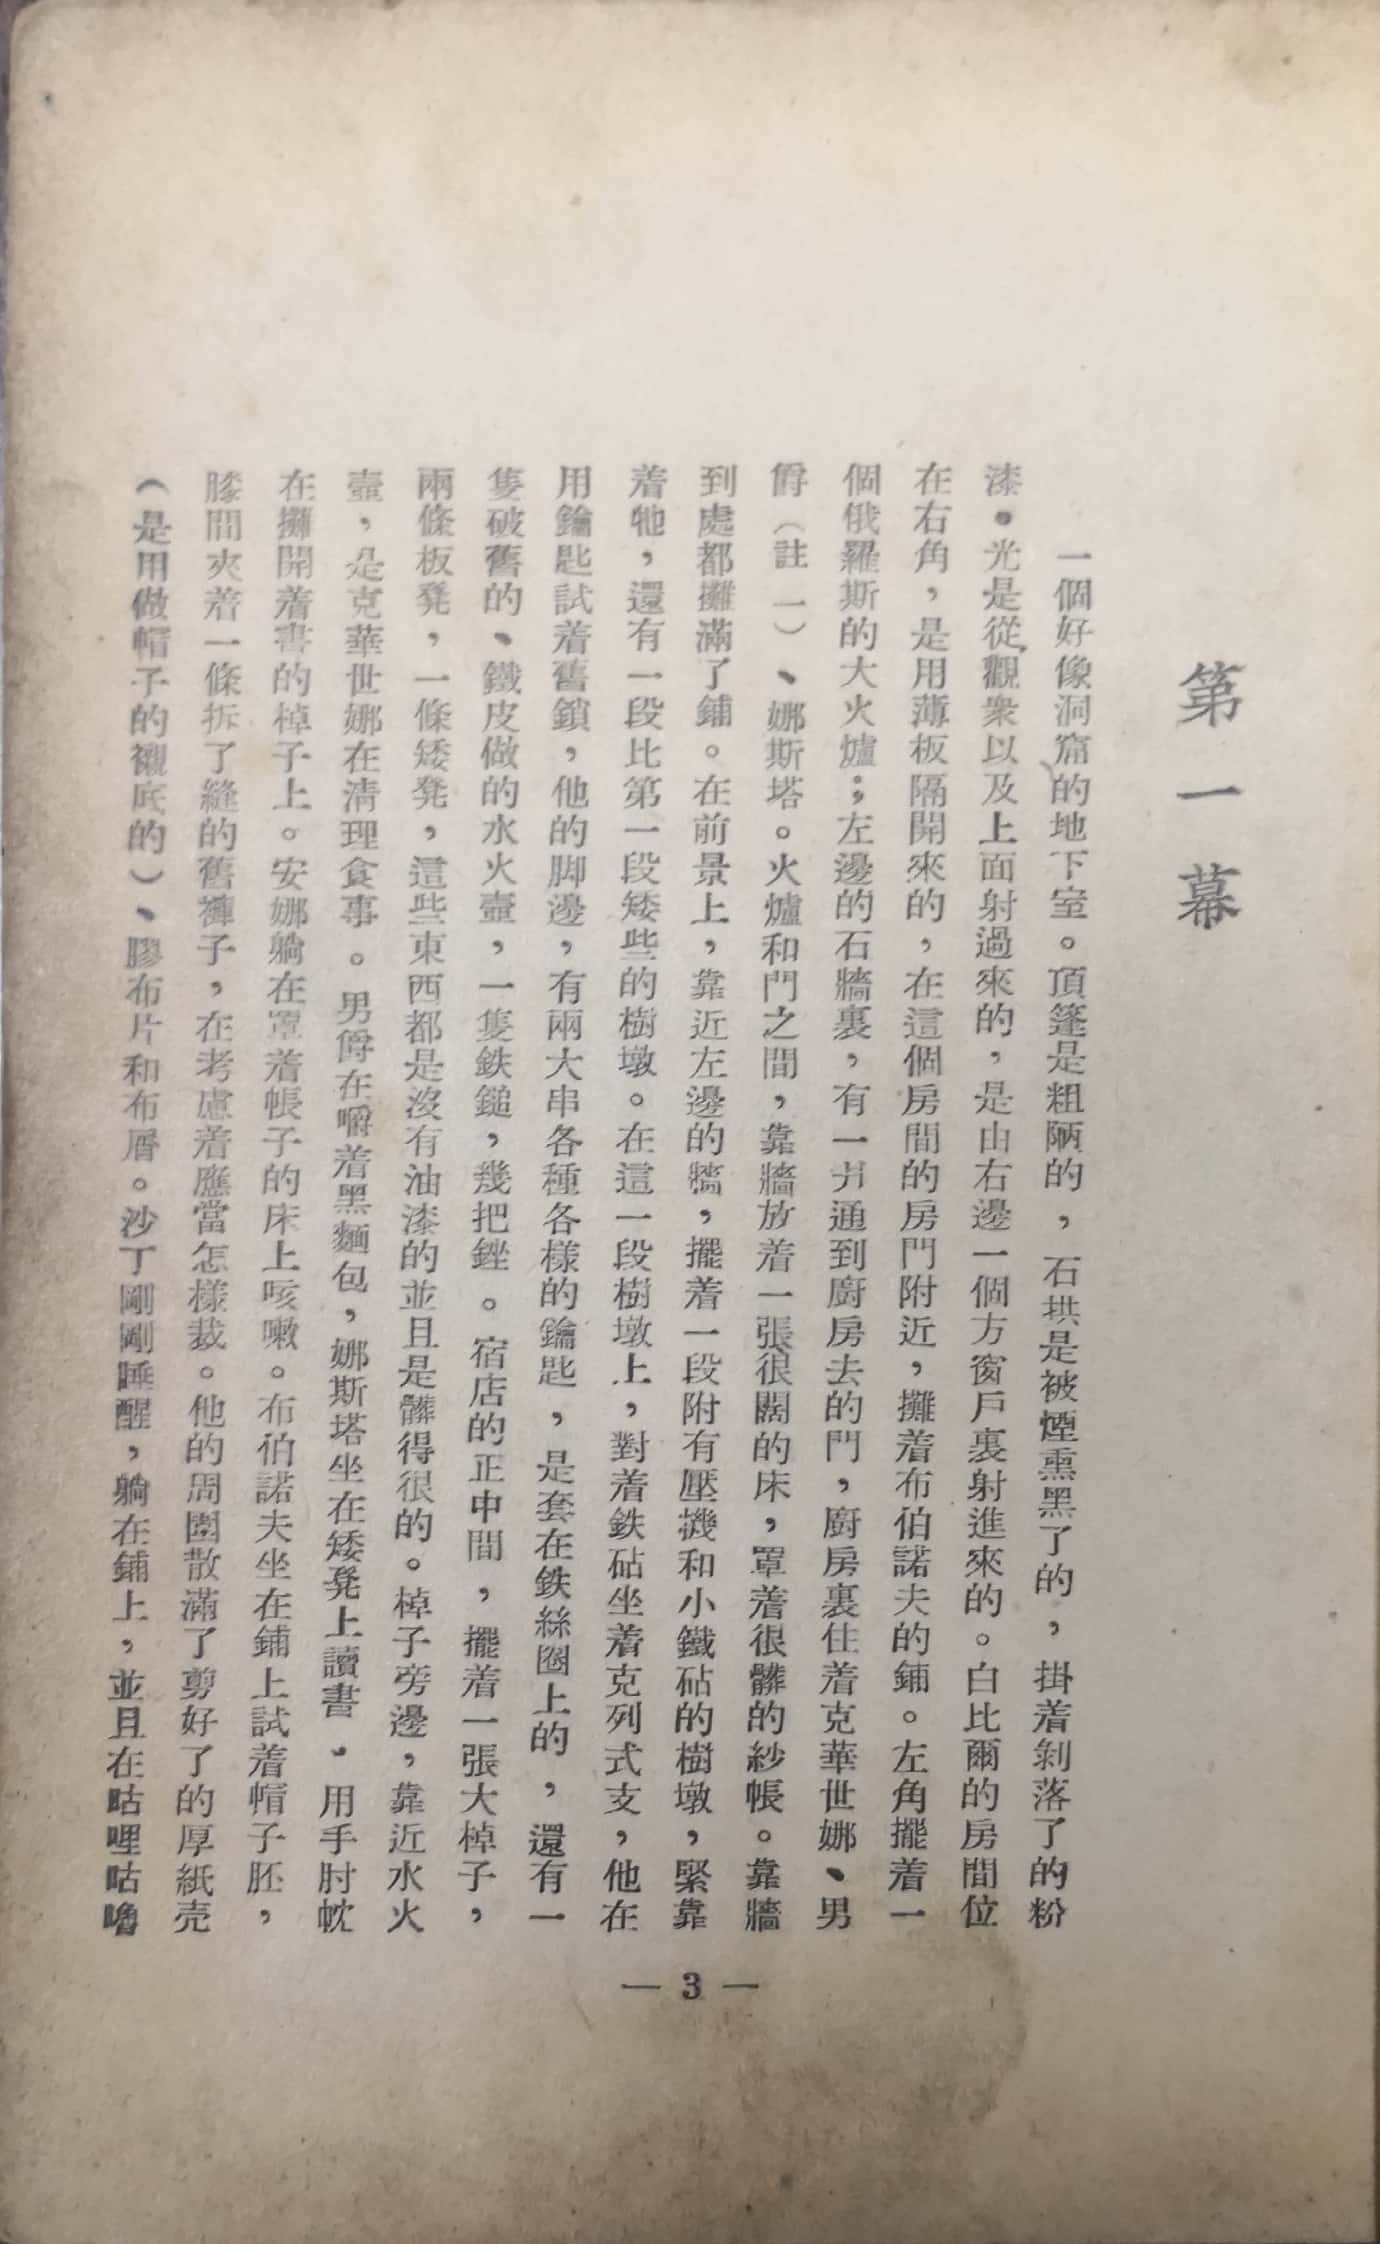 第一幕
一個好像洞窟的地下室。頂篷是粗陋的，石拱是被煙熏黑了的，掛着剝落了的粉
漆。光是從觀衆以及上面射過來的，是由右邊一個方窗戶裏射進來的。白比爾的房間位
在右角，是用薄板隔開來的，在這個房間的房門附近，攤着布伯諾夫的鋪。左角擺着一
個俄羅斯的大火爐；左邊的石牆裏，有一爿通到廚房去的門，廚房裏住着克華世娜、男
爵（註一）、娜斯塔。火爐和門之間，靠牆放着一張很闊的床，罩着很髒的紗帳。靠牆
到處都攤滿了鋪。在前景上，靠近左邊的牆，擺着一段附有壓機和小鐵砧的樹墩，緊靠
着牠，還有一段比第一段矮些的樹墩。在這一段樹墩上，對着鉄砧坐着克列式支，他在
用鑰匙試着舊鎖，他的脚邊，有兩大串各種各樣的鑰匙，是套在鉄絲圈上的，還有一
隻破舊的、鐵皮做的水火壼，一隻鉄鎚，幾把銼。宿店的正中間，擺着一張大棹子，
兩條板凳，一條矮凳，這些東西都是沒有油漆的並且是髒得很的。棹子旁邊，靠近水火
壼，是克華世娜在清理食事。男爵在嚼着黑麵包，娜斯塔坐在矮凳上讀書，用手肘枕
在攤開着書的棹子上。安娜躺在罩着帳子的床上咳嗽。布伯諾夫坐在鋪上試着帽子胚，
膝間夾着一條拆了縫的舊褲子，在考慮着應當怎樣裁。他的周圍散滿了剪好了的厚紙壳
（是用做帽子的襯底的）、膠布片和布屑。沙丁剛剛睡醒，躺在鋪上，並且在咕哩咕嚕
— 3 —